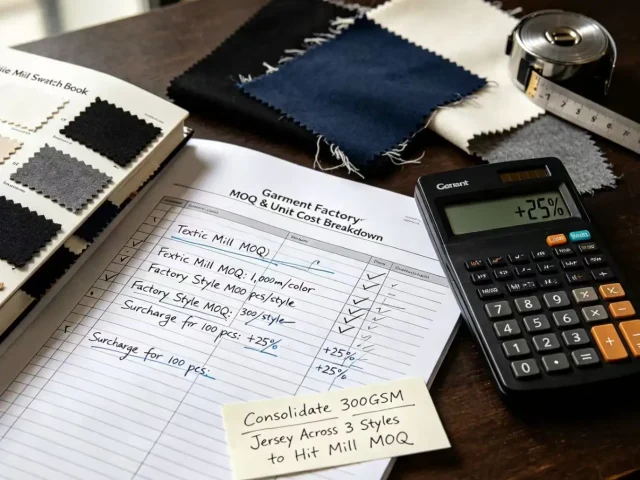 Mill Swatch Book
Garment Factory
MOQ & Unit Cost Breakdown
Textic Mill MOQ:
Fextic Mill MOQ: 1,000m/color
Factory Style MOO pcs/style
Factory Style MOQ: 300/style
Surcharge for 100 pcs: +25%
+25%
+25%
Surcharge for 100 pcs:
Consolidate 300GSM
Jersey Across 3 Styles
to Hit Mill MOQ
+25%
7 8 9
4 5 6
1 2 3
0